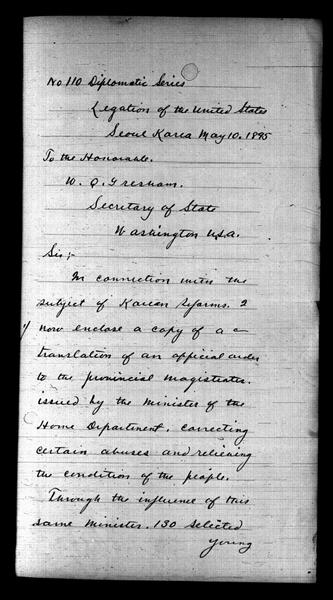 No. 110 Diplomatic Series
Legation of the United States
Seoul Korea May 10. 1895
To the Honorable.
W. Q. Gresham.
Secretary of State
Washington U.S.A.
Sir;-
In connection with the
subject of Korean reforms. I
now enclose a copy of a
translation of an official order
to the provincial magistrates.
issued by the Minister of the
Home Department, correcting
certain abuses and relieving
the condition of the people.
Through the influence of this
same Minister. 130 selected
young